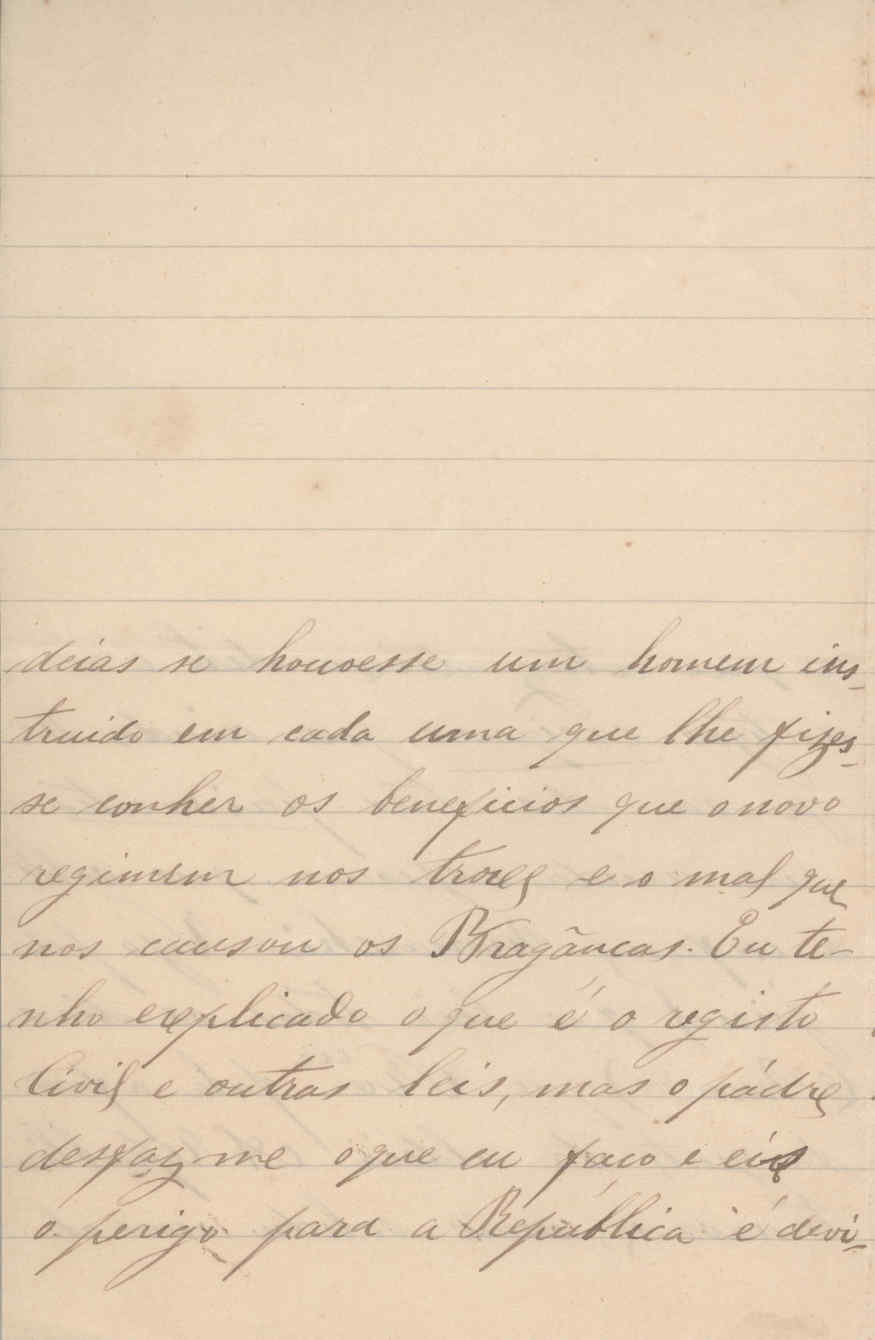 deias se houvesse um homem ins-
truido em cada uma que lhe fizes-
se conher os beneficios que o novo
regimem nos troueç e o mal que
nos causou os Bragãncas. Eu te-
nho explicado o que é o registo
Civil e outras leis, mas o pádre
desfaz-me o que eu faco e eis
o perigo para a República é devi-